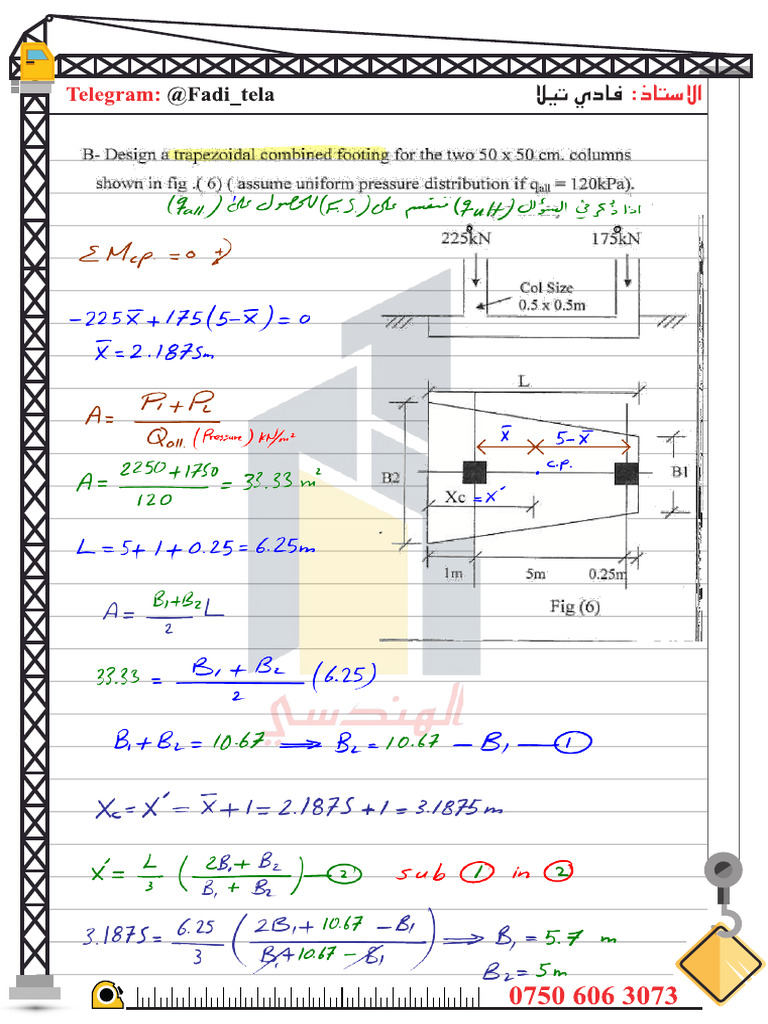 Telegram: @Fadi_tela
الاستاذ: فادي تيلا
B- Design a trapezoidal combined footing for the two 50 x 50 cm. columns
shown in fig .( 6) ( assume uniform pressure distribution if qall = 120kPa).
اذا ذكر في السؤال (qult) نقسم على (F.S.) للحصول على (qall)
ΣMc.p. = 0 +
225kN 0 175kN 0
Col Size
0.5 x 0.5m
-225x̄ + 175(5-x̄) = 0
x̄ = 2.1875m
L
A = P1 + P2 / Qall. (Pressure) kN/m²
x̄ 5-x̄
c.p.
B2 B1
Xc = x'
A = 2250 + 1750 / 120 = 33.33 m²
L = 5 + 1 + 0.25 = 6.25m
1m 5m 0.25m
Fig (6)
A = B1+B2 / 2 L
33.33 = B1 + B2 / 2 (6.25)
الهندسي
B1 + B2 = 10.67 ⟹ B2 = 10.67 - B1 — 1
Xc = X' = x̄ + 1 = 2.1875 + 1 = 3.1875m
x' = L/3 ( 2B1 + B2 / B1 + B2 ) — 2 sub 1 in 2
3.1875 = 6.25/3 ( 2B1 + 10.67 - B1 / B1 + 10.67 - B1 ) ⟹ B1 = 5.7 m
B2 = 5m
0750 606 3073